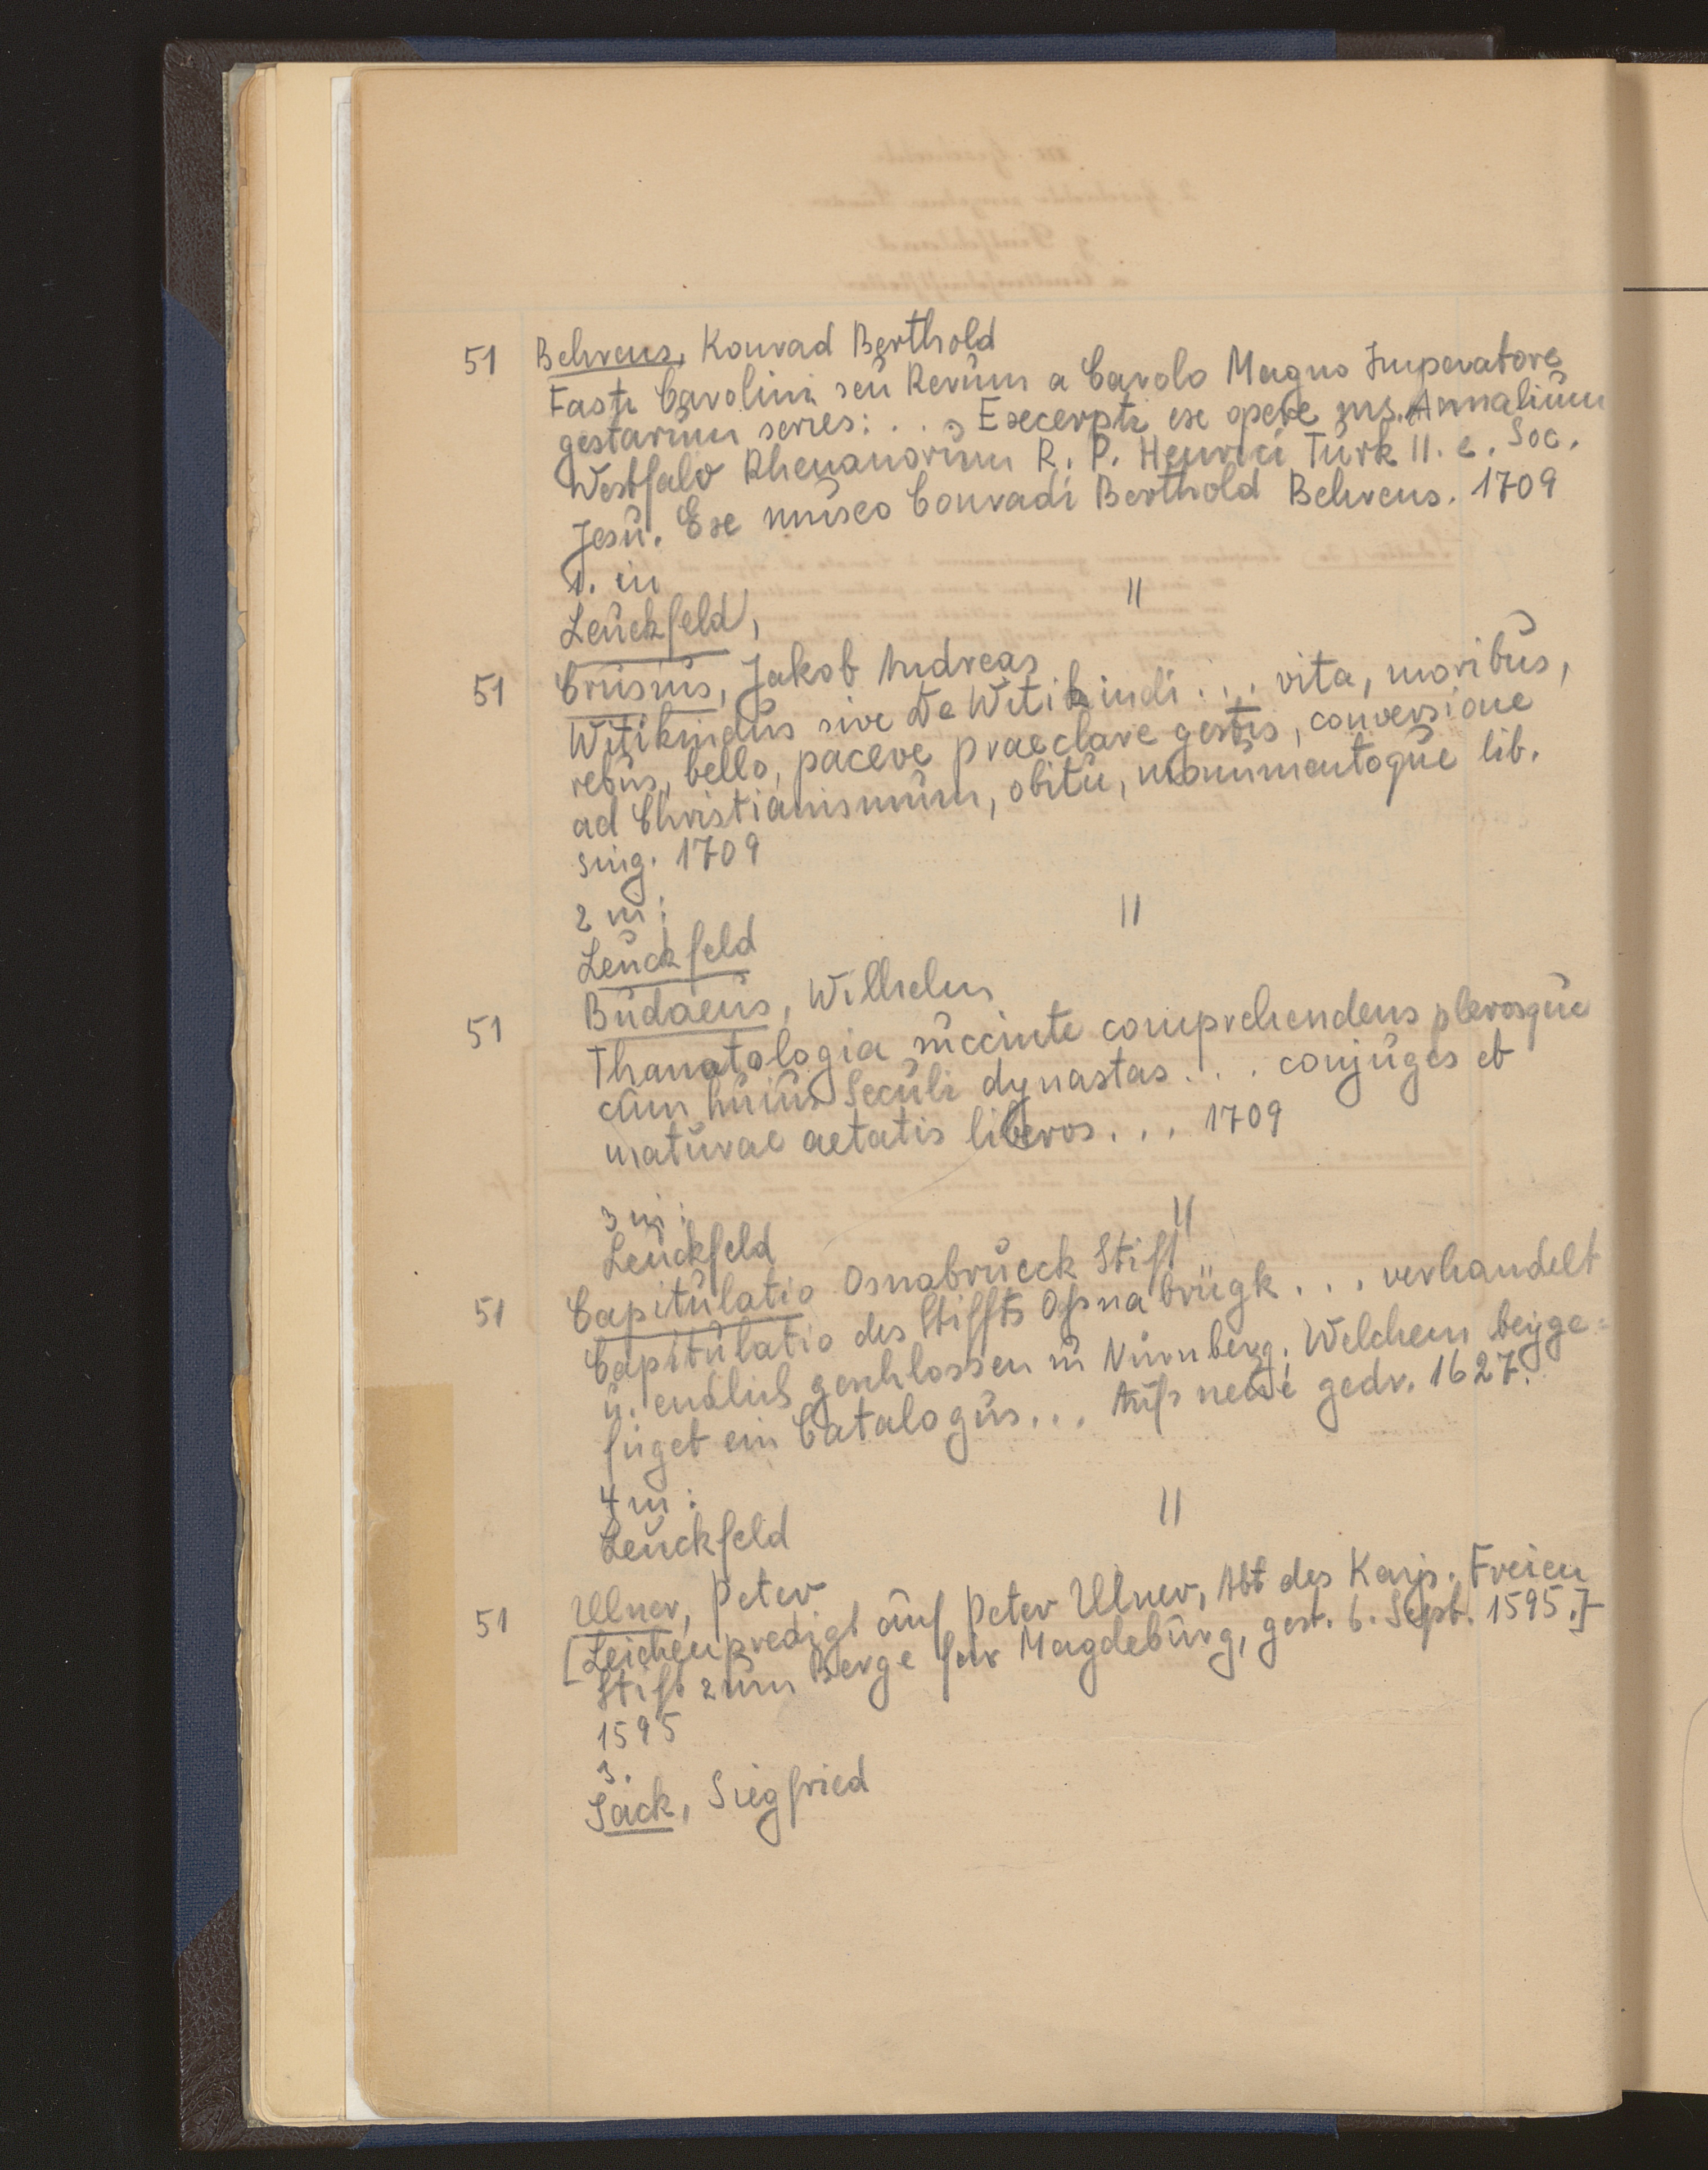 51 Behrens, Konrad Berthold
Fasti Carolini seu Rerum a Carolo Magno Imperatore
gestarum series: . . . Excerpti ex opere ms. Annalium
Westfalo Rhenanorum R. P. Henrici Turk II. e. Soc.
Jesu. Ex museo Conradi Berthold Behrens. 1709
1. in
Leuckfeld, "
51 Crusius, Jakob Andreas
Witikindus sive De Witikindi . . . vita, moribus,
rebus, bello, paceve praeclare gestis, conversione
ad Christianismum, obitu, monumentoque lib.
sing. 1709
2 in:
Leuckfeld "
51 Budaeus, Wilhelm
Thanatologia succinte comprehendens plerosque
cum huius Seculi dynastas . . . conjuges et
maturae aetatis liberos . . . 1709
3 in:
Leuckfeld "
51 Capitulatio Osnabrueck Stift
Capitulatio des Stiffts Oßnabrügk . . . verhandelt
u. endlich geschlossen in Nürnberg. Welchem beyge=
füget ein Catalogus . . . Aufs neue gedr. 1627.
4 in:
Leuckfeld "
51 Ulner, Peter
[Leichenpredigt auf Peter Ulner, Abt des Kays. Freien
Stift zum Berge für Magdeburg, gest. 6. Sept. 1595.]
1595
3.
Sack, Siegfried